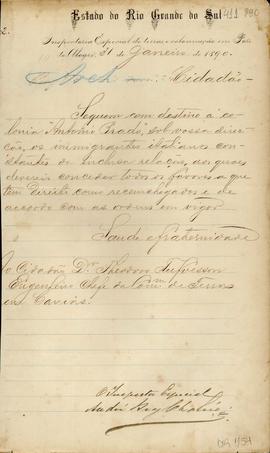 Estado do Rio Grande do Sul
2.
Inspectoria Especial de terras e colonisação em Porto
Alegre, 31 de Janeiro de 1890.
Arch Cidadão
Seguem com destino á co-
lonia "Antonio Prado" sob vossa direc-
ção, os immigrantes italianos con-
stantes da inclusa relação, aos quaes
devereis conceder todos os favores a que
tem direito como recemchegados e de
accordo com as ordens em vigor
Saude e fraternidade
Ao Cidadão Dr.
Engenheiro Chefe da Comm. de Terras
em Caxias.
O Inspector Especial